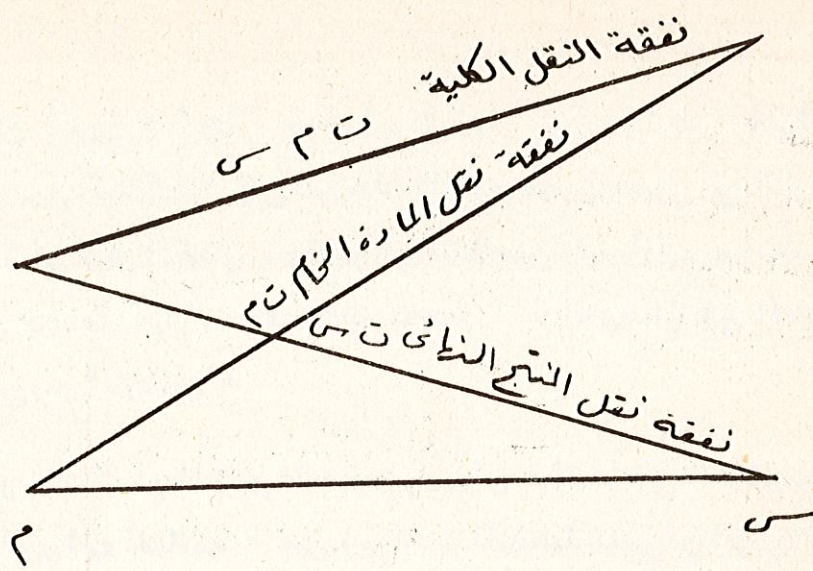 نفقة النقل الكلية ت م س
نفقة نقل المادة الخام ت م
نفقة نقل المنتج النهائى ت س
م
س